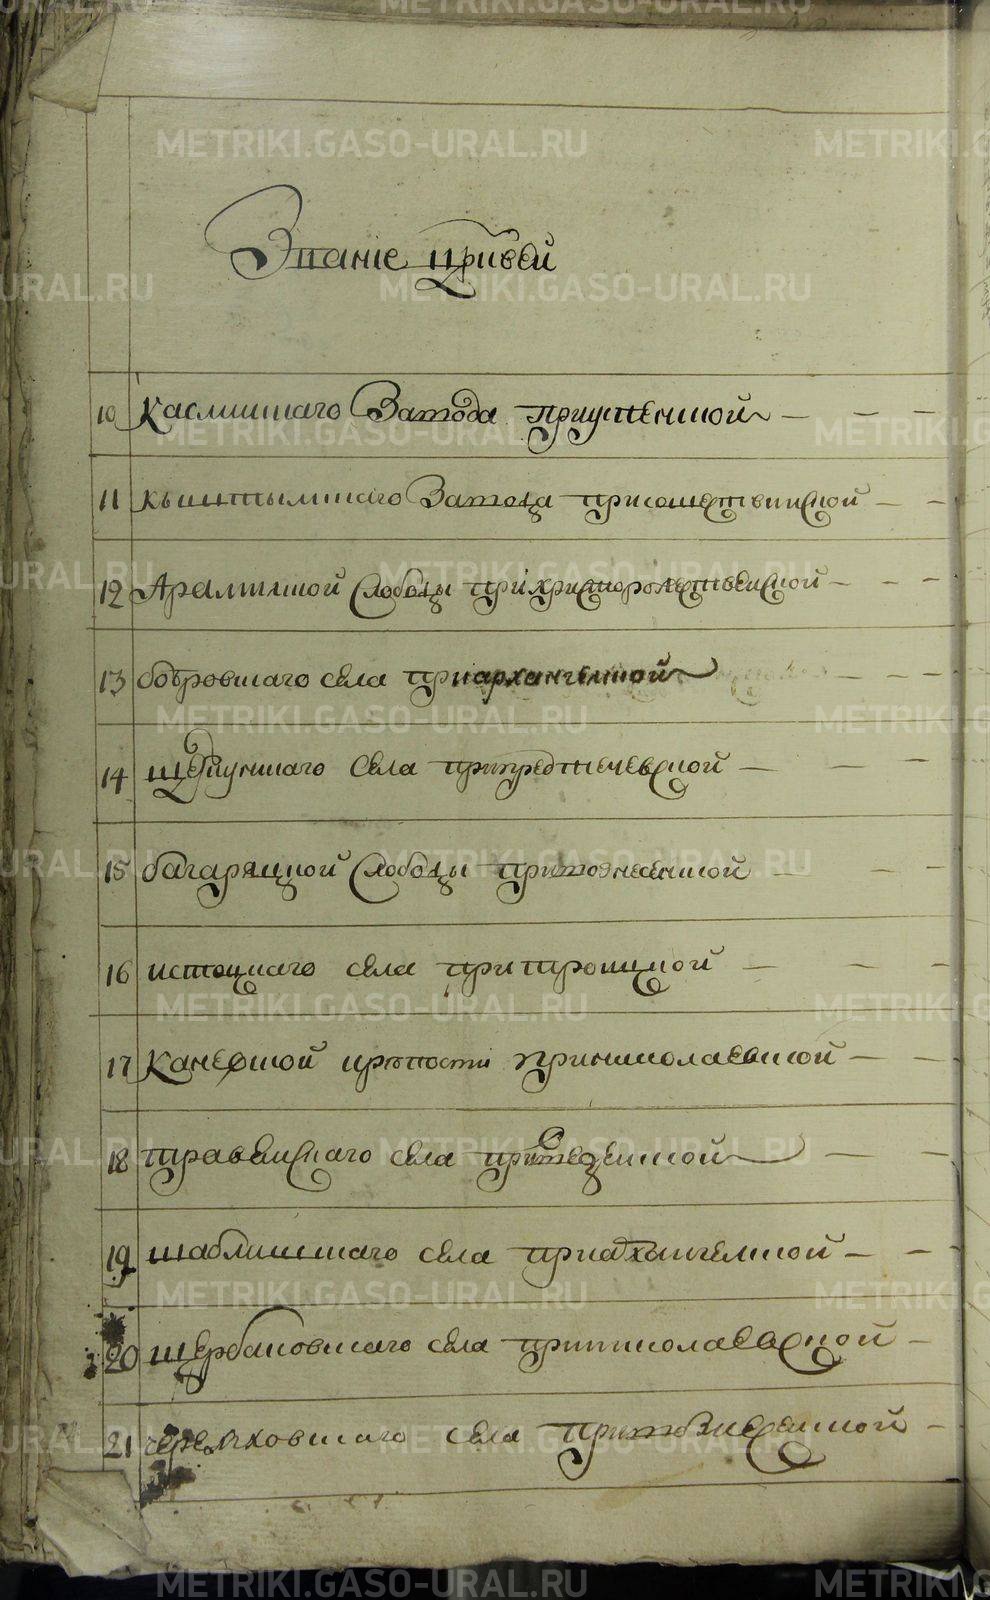 METRIKI.GASO-URAL.RU
Званіе церквей
10 Каслинскаго Завода при Успенской
11 Кыштымскаго Завода при Сошественской
12 Арамилской Слободы при Христорождественской
13 Бобровскаго села при Архангелской
14 Щелкунскаго Села при Предтечевской
15 Багаряцкой Слободы при Вознесенской
16 Истоцкаго села при Троицкой
17 Каневской крѣпости при Николаевской
18 Травянскаго села при Введенской
19 Шаблишскаго села при Архангелской
20 Щербаковскаго села при Николаевской
21 Черемховскаго села при Вознесенской